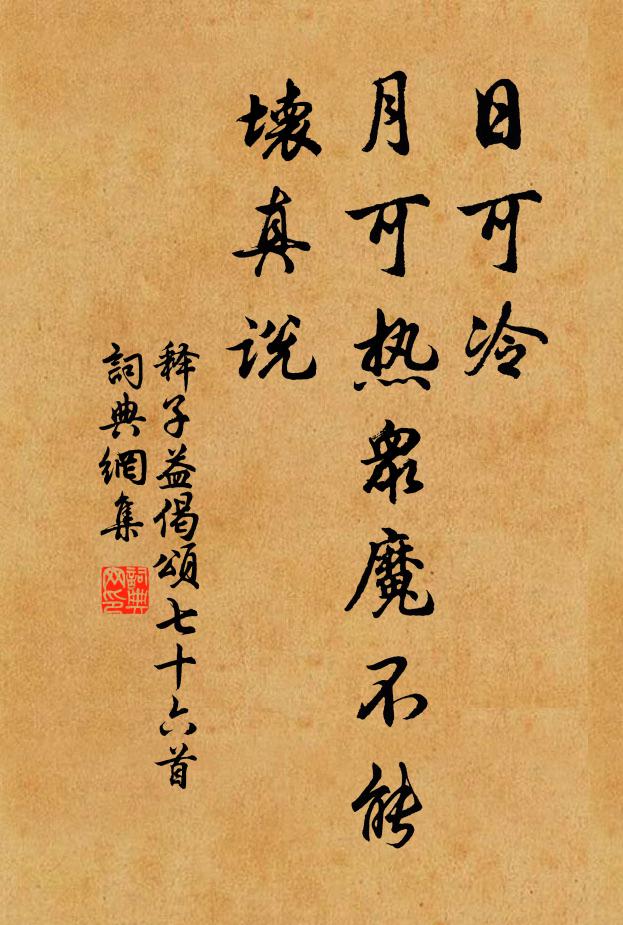 日可冷
月可热众魔不能
壞真说
释子益偈頌七十六首
詞典網集
詞典网印